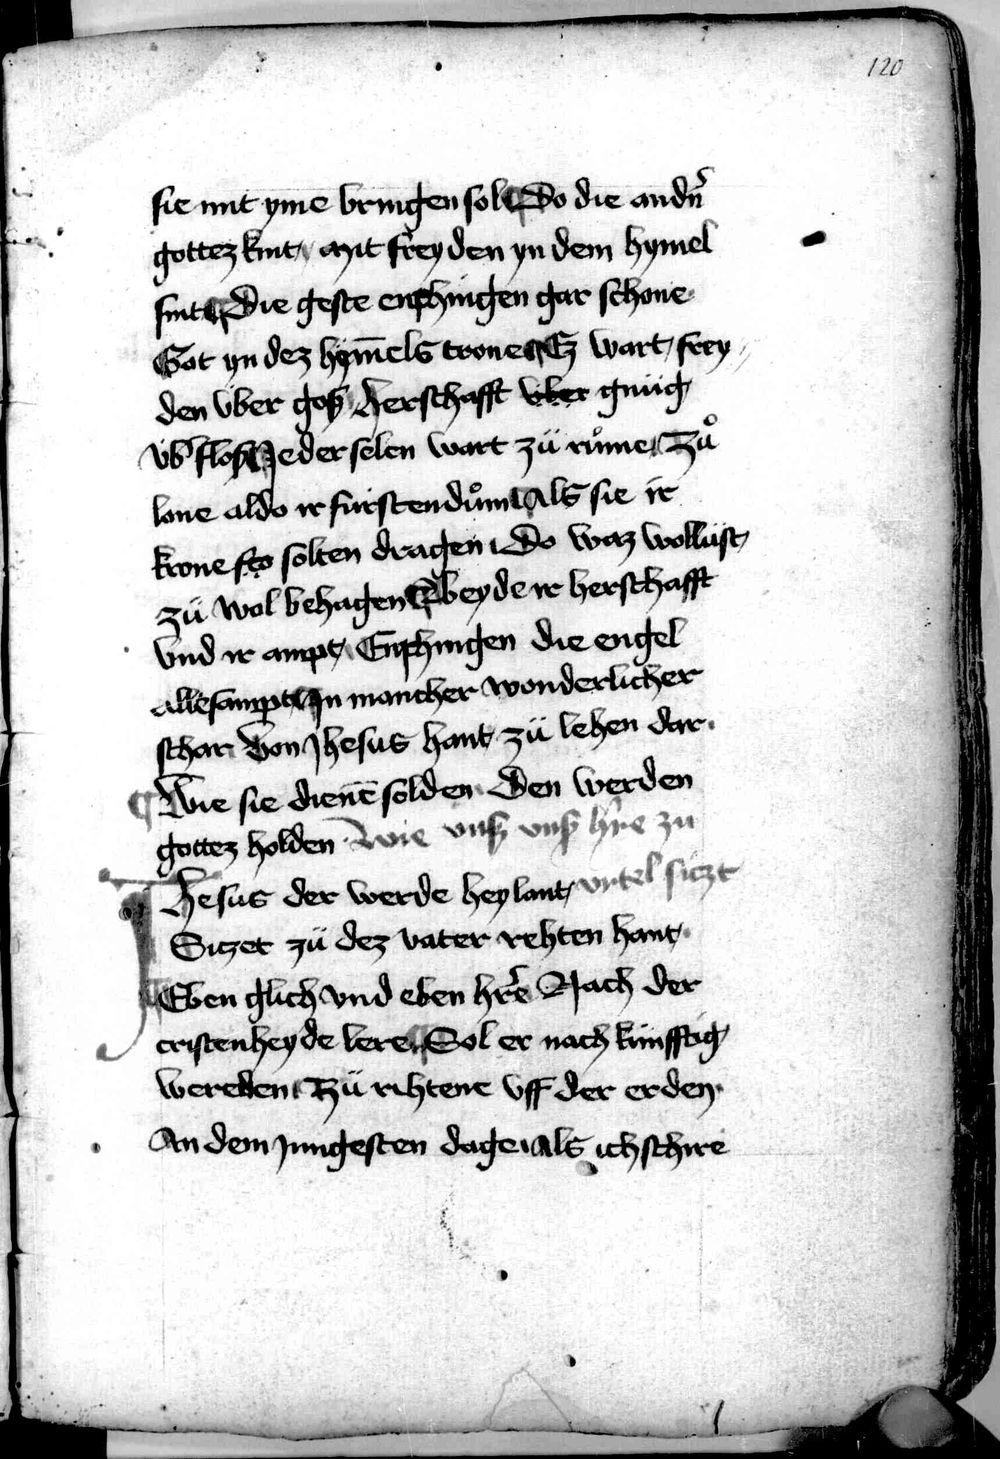 120
sie mit yme bringen sol Do die andn̄
gottez kint Mit freyden yn dem hymel
sint Die geste enphingen gar schone
Got yn dez hym̄els trone Ez wart frey
den vber gosz Herschafft vber gnüg
vb' flosz Jeder selen wart zü růme Zů
lone aldo ir fürstendům Als sie ir
krone solten dragen Do waz wollüst
zü wol behagen beyde ir herschafft
vnd ir ampt Enphingen die engel
allesampt In mancher wonderlicher
schar Von Jhesus hant zü lehen dar
Wie sie dienē solden Den werden
gottez holden Wie vnsz vnsz h're zu
Jhesus der werde heylant vrtel siczt
Siczet zü dez vater rehten hant
Eben glich vnd eben h're Nach der
cristenheyde lere Sol er nach künfftig
wereden Zü rihtene vff der erden
An dem Jungesten dage Als ich schire